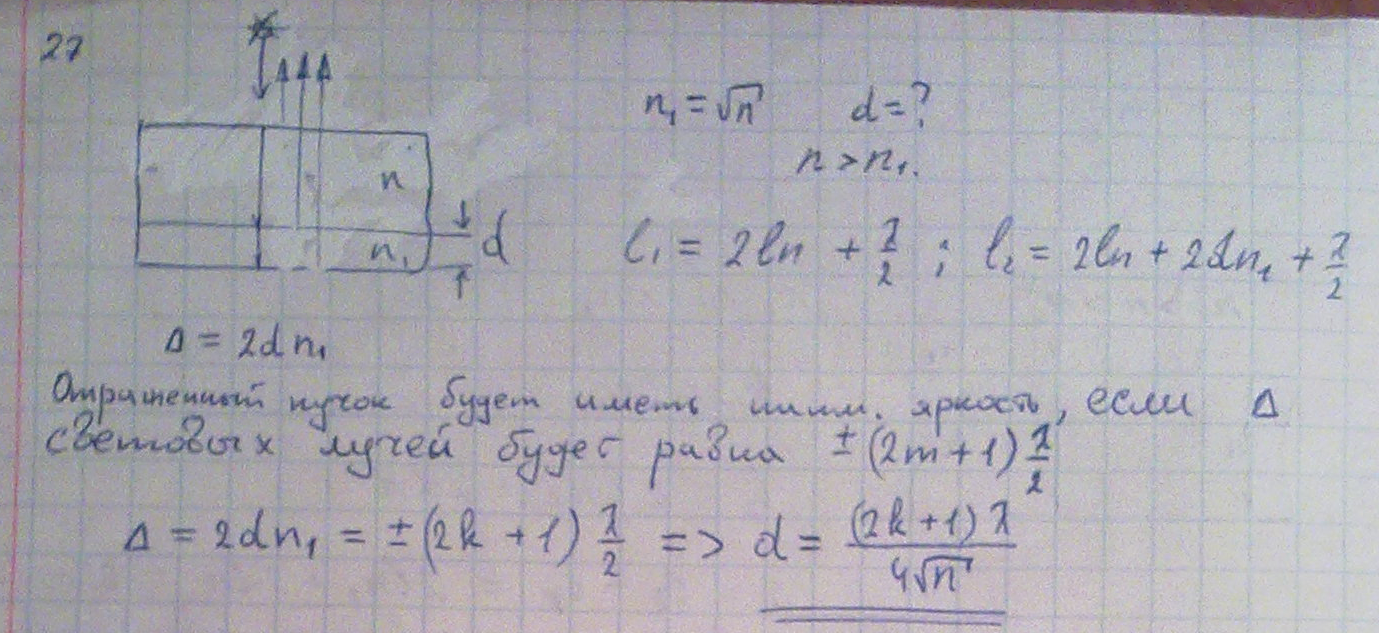 27
n₁ = √n d = ?
n > n₁.
n
n₁ d
l₁ = 2ln + λ/2 ; l₂ = 2ln + 2dn₁ + λ/2
Δ = 2dn₁
Отраженный пучок будет иметь миним. яркость, если Δ
световых лучей будет равна ±(2m+1) λ/2
Δ = 2dn₁ = ±(2k+1) λ/2 => d = (2k+1)λ / 4√n